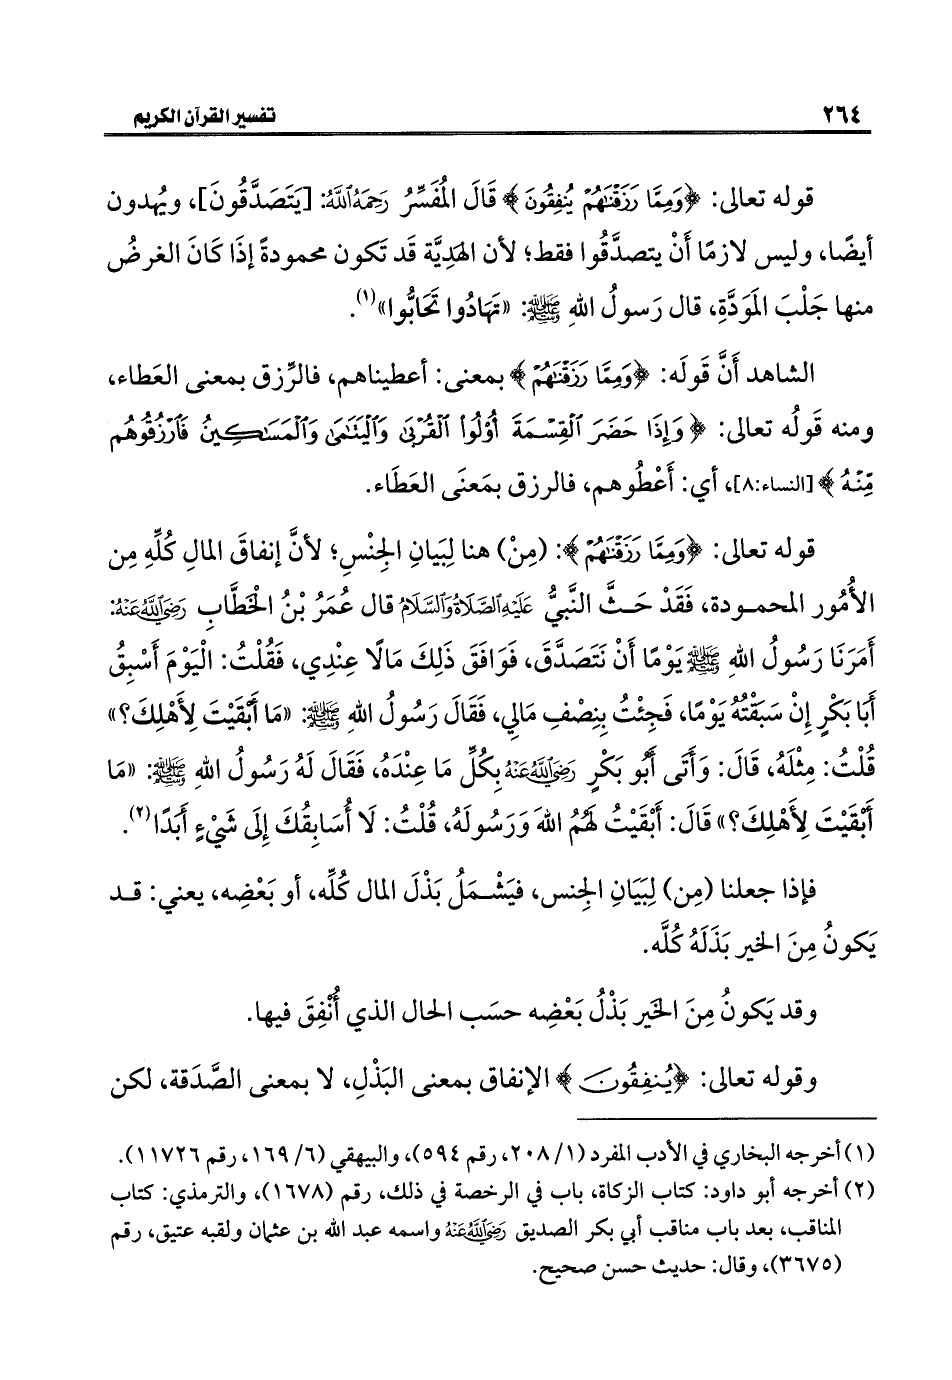 ٢٦٤ تفسير القرآن الكريم
قوله تعالى: ﴿وَمِمَّا رَزَقْنَاهُمْ يُنْفِقُونَ﴾ قَالَ المُفَسِّرُ رَحِمَهُ اللَّهُ: [يَتَصَدَّقُونَ]، ويُهدون
أيضًا، وليس لازمًا أَنْ يتصدَّقُوا فقط؛ لأن الهَدِيَّة قَد تَكون محمودةً إذَا كَانَ الغرضُ
منها جَلْبَ المَوَدَّةِ، قال رَسولُ اللهِ ﷺ: «تَهَادُوا تَحَابُّوا»(١).
الشاهد أَنَّ قَولَه: ﴿وَمِمَّا رَزَقْنَاهُمْ﴾ بمعنى: أعطيناهم، فالرِّزق بمعنى العَطاء،
ومنه قَولُه تعالى: ﴿وَإِذَا حَضَرَ الْقِسْمَةَ أُوْلُواْ الْقُرْبَى وَالْيَتَامَى وَالْمَسَاكِينُ فَارْزُقُوهُم
مِّنْهُ﴾ [النساء:٨]، أي: أَعْطُوهم، فالرزق بمَعنَى العَطَاء.
قوله تعالى: ﴿وَمِمَّا رَزَقْنَاهُمْ﴾: (مِنْ) هنا لِبَيانِ الجِنْسِ؛ لأنَّ إنفاقَ المالِ كُلِّهِ مِن
الأُمُور المحمودة، فَقَدْ حَثَّ النَّبيُّ عَلَيْهِ الصَّلَاةُ وَالسَّلَامُ قال عُمَرُ بْنُ الخَطَّابِ رَضِيَ اللَّهُ عَنْهُ:
أَمَرَنَا رَسُولُ اللهِ ﷺ يَوْمًا أَنْ نَتَصَدَّقَ، فَوَافَقَ ذَلِكَ مَالًا عِنْدِي، فَقُلْتُ: الْيَوْمَ أَسْبِقُ
أَبَا بَكْرٍ إِنْ سَبَقْتُهُ يَوْمًا، فَجِئْتُ بِنِصْفِ مَالِي، فَقَالَ رَسُولُ اللهِ ﷺ: «مَا أَبْقَيْتَ لِأَهْلِكَ؟»
قُلْتُ: مِثْلَهُ، قَالَ: وَأَتَى أَبُو بَكْرٍ رَضِيَ اللَّهُ عَنْهُ بِكُلِّ مَا عِنْدَهُ، فَقَالَ لَهُ رَسُولُ اللهِ ﷺ: «مَا
أَبْقَيْتَ لِأَهْلِكَ؟» قَالَ: أَبْقَيْتُ لَهُمُ اللهَ وَرَسُولَهُ، قُلْتُ: لَا أُسَابِقُكَ إِلَى شَيْءٍ أَبَدًا(٢).
فإذا جعلنا (مِن) لِبَيَانِ الجنس، فيَشْمَلُ بَذْلَ المال كُلِّه، أو بَعْضِه، يعني: قد
يَكونُ مِنَ الخير بَذَلَهُ كُلَّه.
وقد يَكونُ مِنَ الخَير بَذْلُ بَعْضِه حسَب الحال الذي أُنْفِقَ فيها.
وقوله تعالى: ﴿يُنفِقُونَ﴾ الإنفاق بمعنى البَذْلِ، لا بمعنى الصَّدَقة، لكن
(١) أخرجه البخاري في الأدب المفرد (١/ ٢٠٨، رقم ٥٩٤)، والبيهقي (٦/ ١٦٩، رقم ١١٧٢٦).
(٢) أخرجه أبو داود: كتاب الزكاة، باب في الرخصة في ذلك، رقم (١٦٧٨)، والترمذي: كتاب
المناقب، بعد باب مناقب أبي بكر الصديق رَضِيَ اللَّهُ عَنْهُ واسمه عبد الله بن عثمان ولقبه عتيق، رقم
(٣٦٧٥)، وقال: حديث حسن صحيح.